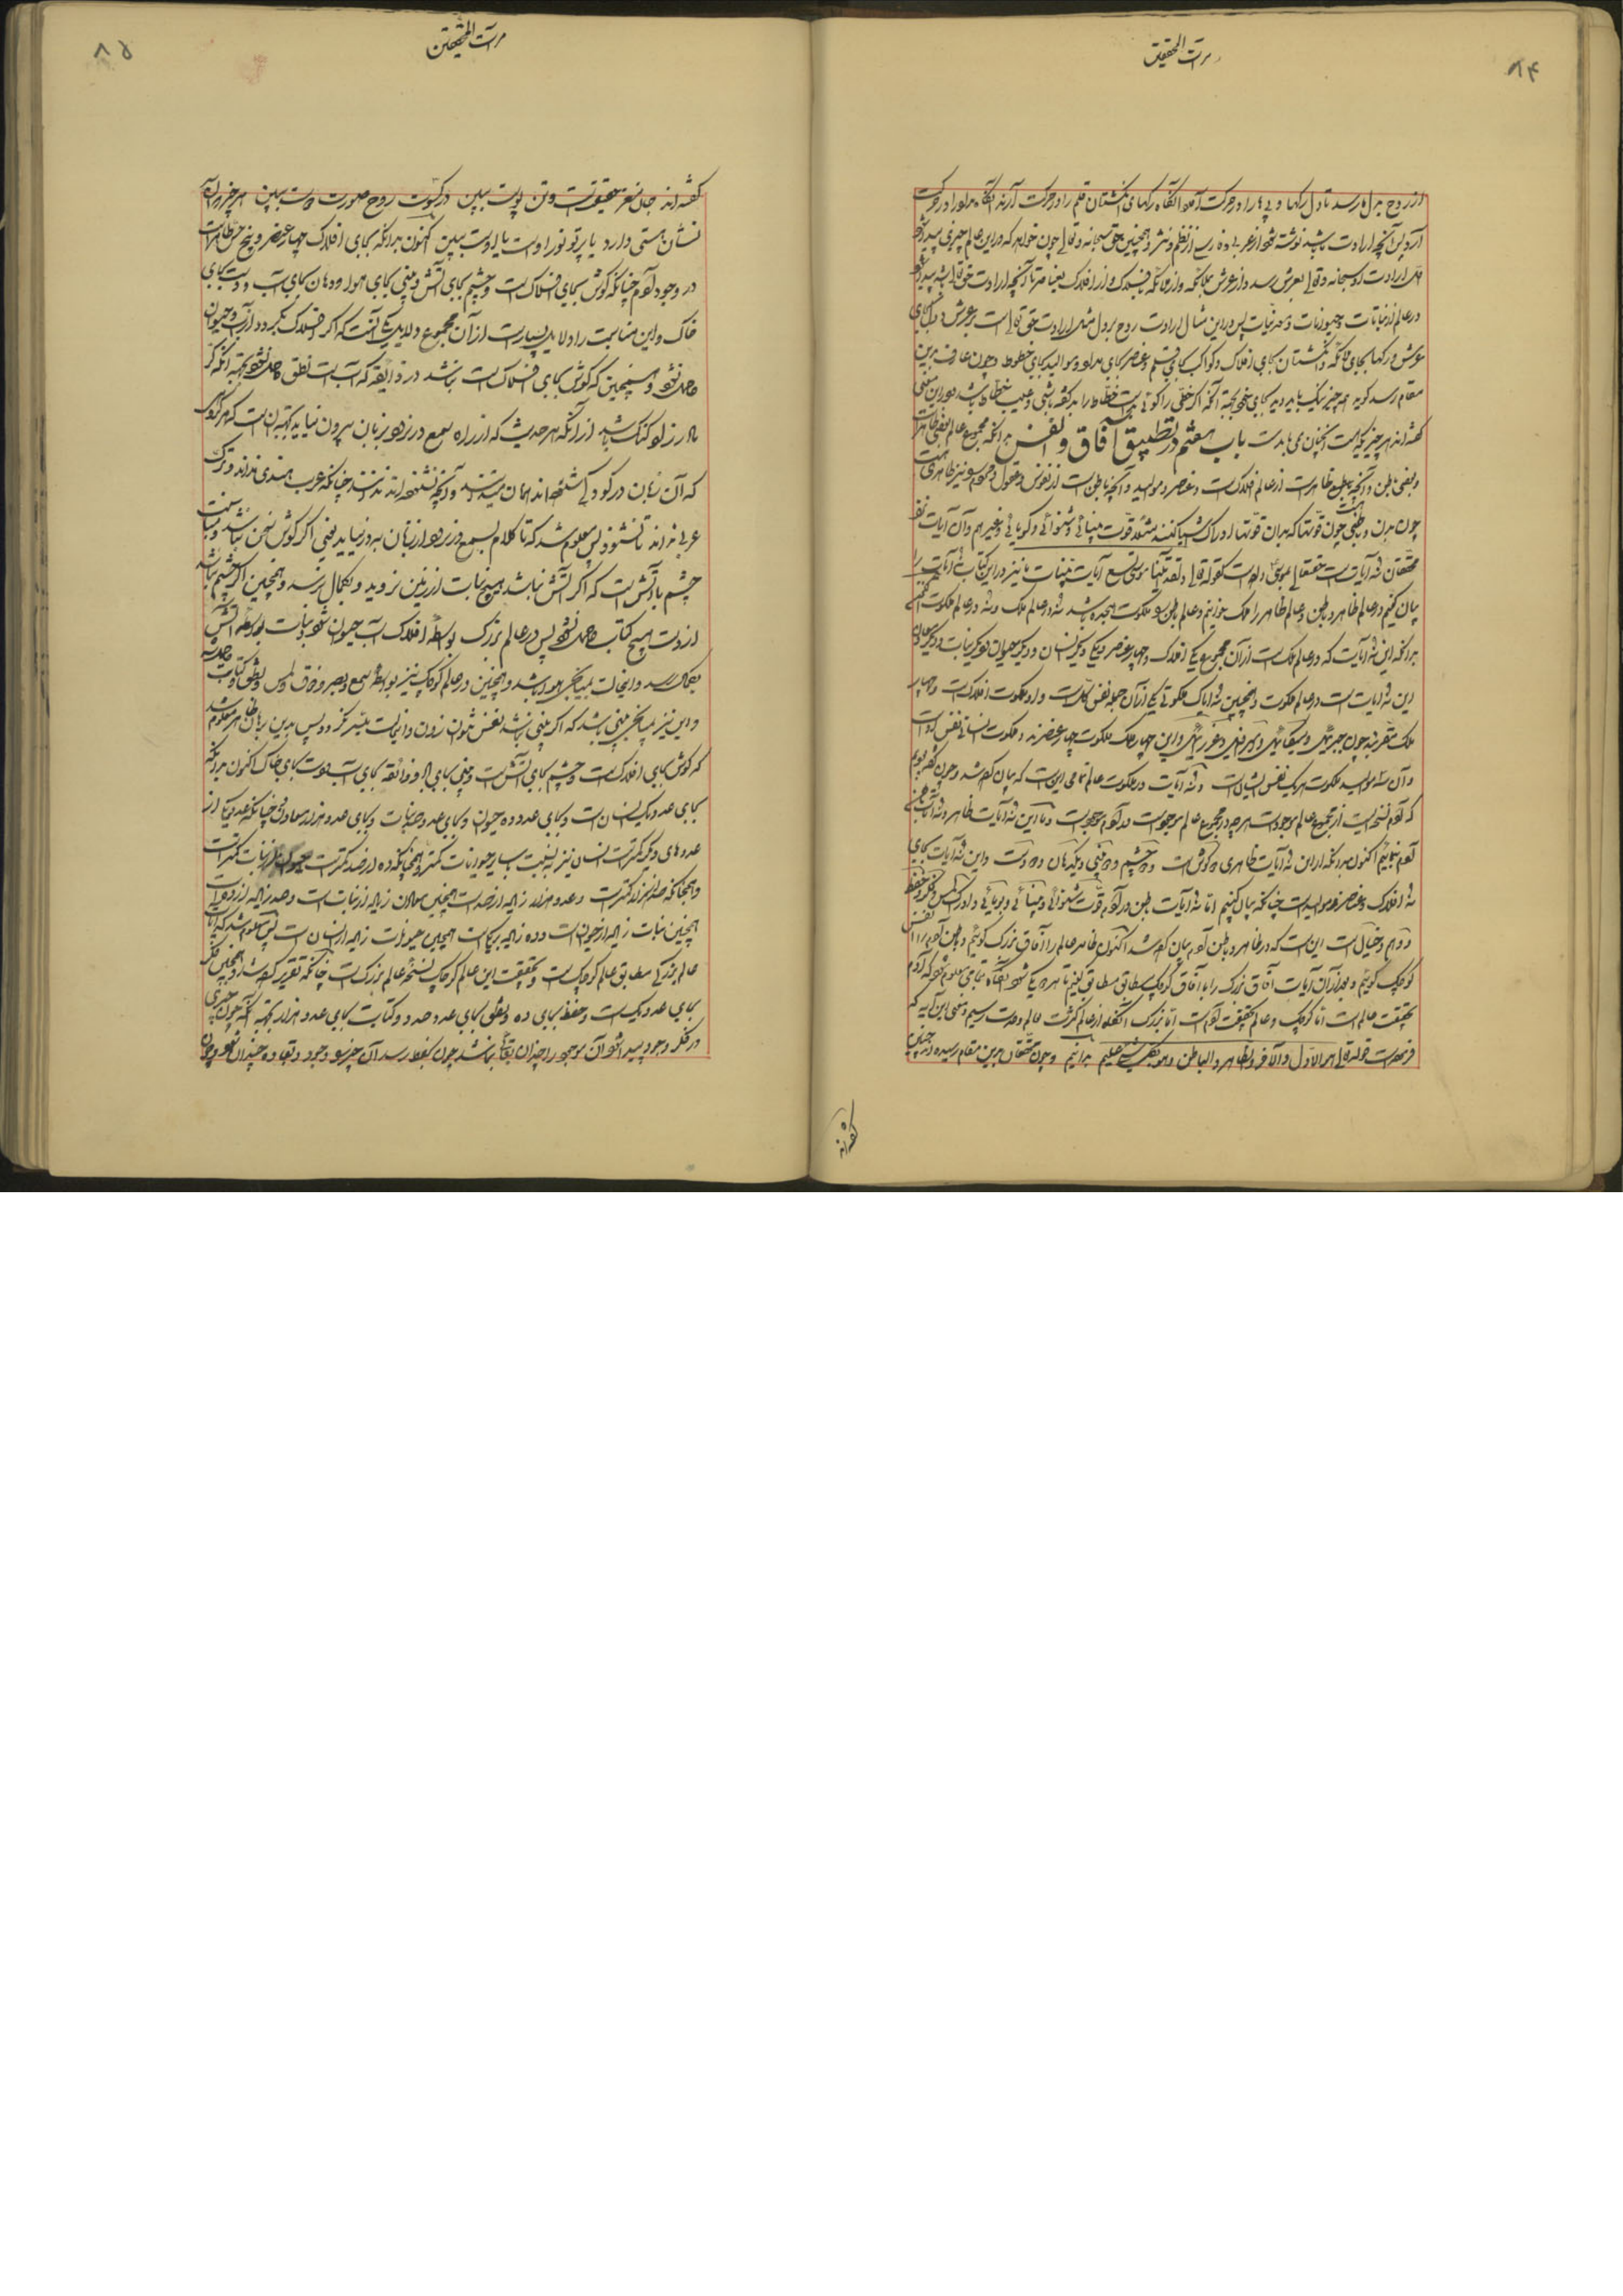 مرآت المحققین
۸۴
از روح بدل برسد تا دل رکها و پی‌ها را در حرکت آرد آنکاه رکهای انکشتان قلم را در حرکت آرند آنکاه مداد را در حرکت
آرد پس آنچه ارادت باشد نوشته شود از عربی و فارسی از نظم و نثر و همچنین حق سبحانه و تعالی چون خواهد که در این عالم چیزی پیدا شود
اول ارادت او سبحانه و تعالی بعرش رسد و از عرش بملائکه و از ملائکه و از افلاک بعناصر تا آنچه ارادت حق تعالی باشد پیدا شود
در عالم از نباتات و حیوانات و معدنیات پس در این مثال ارادت روح بر دل مثل ارادت حق تعالی است بر عرش و دل بجای
عرش و رکها بجای ملائکه و انکشتان بجای افلاک و کواکب بجای قلم و عناصر بجای مداد و موالید بجای خطوط و چون عارف بدین
مقام رسد کوید همه چیز نیک باید دید بجای خود بجهة آنکه اکر خطی را کوئی بد است خطاط را بد کفته باشی و عیب خطاط باشد و در این معنی
کفته‌اند هر چیز که هست آنچنان می‌باید است باب هفتم در تطبیق آفاق و انفس بدانکه مجموع عالم بعضی ظاهر است
و بعضی باطن و آنچه ظاهر است از عالم افلاک است و عناصر و موالید و آنچه باطن است از نفوس و عقول و آدم نیز ظاهری است
چون بدن و باطنی چون قوتها که بدان قوتها ادراک اشیا کنند مثلا قوت بینائی و شنوائی و کویائی و غیرهم و آن آیات نفس
محققان نه آیات است حقتعالی موسی را داد کقوله تعالی و لقد آتینا موسی تسع آیات بینات ما نیز در این کتاب نه آیات را
بیان کنیم در عالم ظاهر و باطن و عالم ظاهر را ملک خوانیم و عالم باطن را ملکوت نه در عالم ملک و نه در عالم ملکوت
بدانکه این نه آیات که در عالم ملک است از آن مجموع یکی افلاک و چهار عناصر و یکی انسان و دیگر حیوان و دیگر نبات و دیگر معادن
این نه آیات است در عالم ملکوت و همچنین نه آیات ملکوتی یکی از آن جمله نفس کل است و او ملکوت افلاک است و چهار
ملک مقرب چون جبرئیل و میکائیل و اسرافیل و عزرائیل و این چهار ملک ملکوت چهار عنصرند و ملکوت انسانی نفس او است
و آن سه موالید ملکوت هر یک نفس ایشان است و نه آیات در ملکوت عالم تمامی این است که بیان کرده شد و چون کفته بودیم
که آدم نسخه است از مجموع عالم موجودات هر چه در مجموع عالم موجود است در آدم موجود است و ما این نه آیات ظاهر و نه آیات باطن
آدم بنمائیم اکنون بدانکه از این نه آیات ظاهری دو کوش است و دو چشم و دو بینی و یکی دهان و دو دست و این نه آیات بجای
نه افلاک و عناصر و موالید است چنانکه بیان کنیم اما نه آیات باطن در آدم قوت شنوائی و بینائی و بویائی و ادراک لمس و فکر و حفظ
و وهم و خیال است این است که در ظاهر و باطن آدم بیان کرده شد اکنون ظاهر عالم را آفاق بزرک کوئیم و باطن آدم را انفس
کوچک کوئیم و بعد از آن آیات آفاق بزرک را با آفاق کوچک مطابق مطابق کنیم تا هر دو یکی شود آنکاه تمامی معلوم شود که آدم
بحقیقت عالم است اما کوچک و عالم بحقیقت آدم است اما بزرک آنکاه از عالم کثرت بعالم وحدت رسیم و معنی این آیه که
فرموده است قوله تعالی هو الاول و الآخر و الظاهر و الباطن و هو بکل شیئ علیم بدانیم و چون محققان بدین مقام رسیدند چنین
کفته‌اند
مرآت المحققین
۸۵
کفته‌اند جان مغز حقیقت است و تن پوست ببین در کسوت روح صورت دوست ببین هر چیز که آن
نشان هستی دارد یا پرتو نور او است یا اوست ببین اکنون بدانکه بجای افلاک چهار عناصر و پنج حس ظاهر است
در وجود آدم چنانکه کوش بجای افلاک است و چشم بجای آتش و بینی بجای هوا و دهان بجای آب و دست بجای
خاک و این مناسبت را دلایل بسیار است از آن مجموع دلایل یکی آنست که اکر افلاک نکردد از آب حیوان
حاصل نشود و همچنین که کوش بجای افلاک است نباشد در ذائقه که آب است نطق حاصل نشود بجهة آنکه کر
مادرزاد کنک باشد از آنکه هر حدیث که از راه سمع در نرود بزبان بیرون نیاید بجهة آن است که هر کودک
که آن زبان در کودکی شنیده‌اند همان میدانند و آنچه نشنیده‌اند ندانند چنانکه عرب هندی نداند و ترک
عربی نداند تا نشنود پس معلوم شد که تا کلام بسمع در نرود از زبان بدر نیاید یعنی اکر کوش سخن نباشد و مناسبت
چشم با آتش است که اکر آتش نباشد هیچ نبات از زمین نروید و بکمال نرسد و همچنین اکر چشم نباشد
از دست هیچ کتابت حاصل نشود پس در عالم بزرک بواسطه افلاک آب حیوان شود و نبات بواسطه آتش
بکمال رسد و انحالت بمیانجی هوا باشد و همچنین در عالم کوچک نیز بواسطه سمع و بصر و ذوق و لمس و نطق و کتابت حاصل شد
و این نیز بمیانجی بینی باشد که اکر بینی نباشد نفس نتوان زدن و این حالت میسر نکردد پس بدین برهان ظاهر معلوم شد
که کوش بجای افلاک است و چشم بجای آتش است و بینی بجای باد و ذائقه بجای آب و دست بجای خاک اکنون بدانکه
بجای عدد یک انسان است و بجای عدد ده حیوان و بجای عدد صد نبات و بجای عدد هزار معادن چنانکه عدد یک از
عددهای دیگر کمتر است انسان نیز به نسبت سایر حیوانات کمتر و همچنانکه ده از صد کمتر است حیوان از نبات کمتر است
و همچنانکه صد از هزار کمتر است و عدد هزار زیاده از صد است همچنین معادن زیاده از نبات است و صد زیاده از ده است
همچنین نبات زیاده از حیوان است و ده زیاده بر یک است همچنین حیوانات زیاده از انسان است پس معلوم شد که آیات
عالم بزرک مطابق عالم کوچک است و بحقیقت این عالم کوچک نسخه عالم بزرک است چنانکه تقریر کرده شد و همچنین فکر
بجای عدد یک است و حفظ بجای ده و نطق بجای عدد صد و کتابت بجای عدد هزار بجهة آنکه چون چیزی
در فکر وجود پیدا شود آن موجود را چندان بقائی نباشد چون بحفظ رسد آن چیز بوجود و بقا ده چندان شود و چون